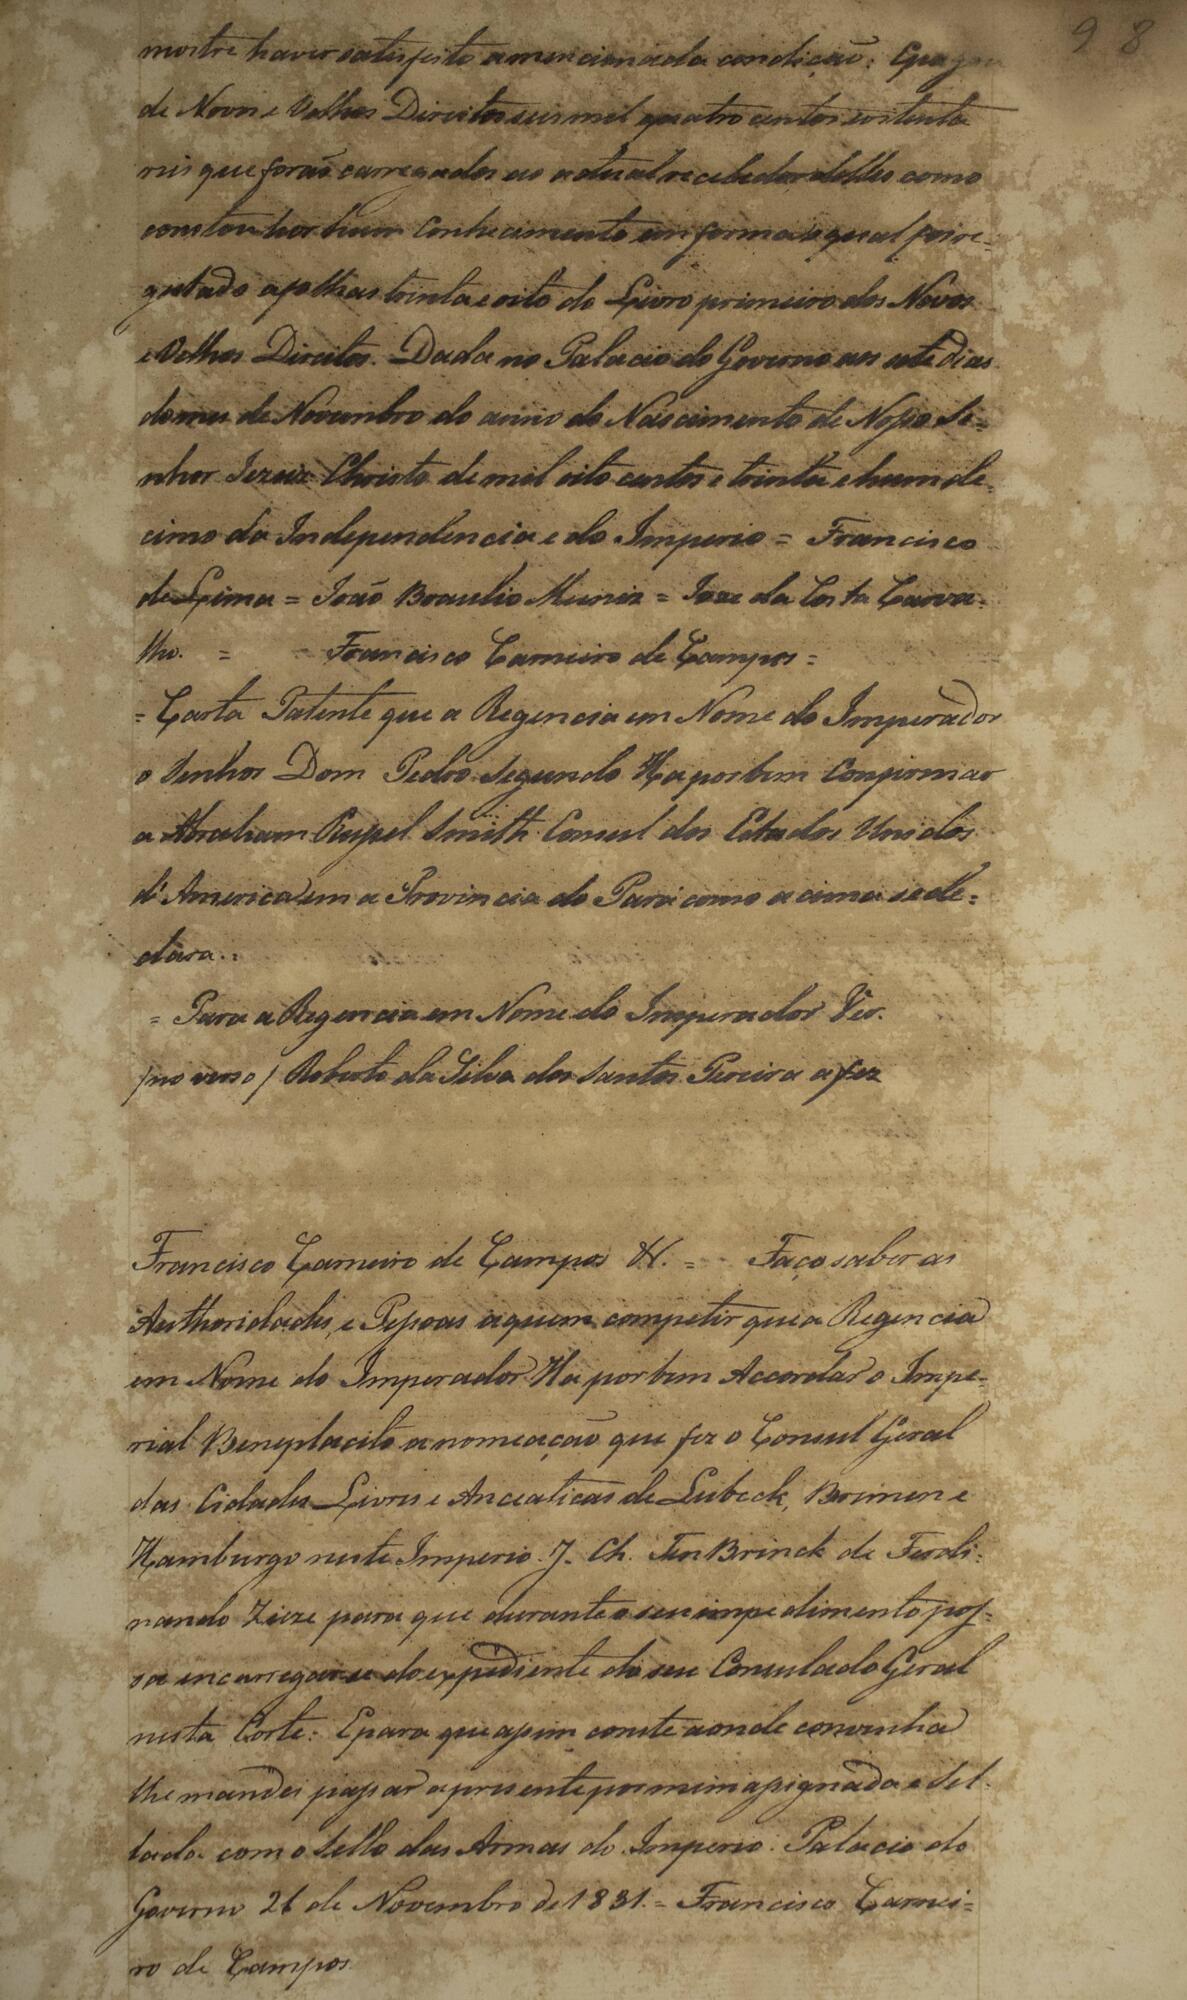 98
mostre haver satisfeito a mencionada condição: E pagou
de Novos e Velhos Direitos seis mil quatro centos e setenta
reis que forão carregados ao actual recebedor delles como
constou por hum Conhecimento em forma o qual foi re-
gistado a folhas trinta e oito do Livro primeiro dos Novos
e Velhos Direitos. Dada no Palacio do Governo aos sete dias
do mez de Novembro do anno do Nascimento de Nosso Se-
nhor Jezuz Christo de mil oito centos e trinta e hum de-
cimo da Independencia e do Imperio = Francisco
de Lima = João Braulio Muniz = Joze da Costa Carva-
lho. = Francisco Carneiro de Campos =
= Carta Patente que a Regencia em Nome do Imperador
o Senhor Dom Pedro Segundo Ha por bem Confirmar
a Abraham Russel Smith Consul dos Estados Unidos
d'America em a Provincia do Pará como acima se de=
clara.
= Para a Regencia em Nome do Imperador Ver.
/no verso/ Roberto da Silva dos Santos Pereira a fez
Francisco Carneiro de Campos &. = Faço saber as
Authoridades, e Pessoas a quem competir que a Regencia
em Nome do Imperador Ha por bem Accordar o Impe-
rial Beneplacito a nomeação que fez o Consul Geral
das Cidades Livres e Anceaticas de Lubeck, Bremen e
Hamburgo neste Imperio J. Ch. Ten Brinck de Ferdi-
nando Zieze para que durante o seu impedimento pos-
sa encarregar-se do expediente do seu Consulado Geral
nesta Corte: E para que assim conste aonde convenha
lhe mandei passar a presente por mim assignada e Sel-
lada com o Sello das Armas do Imperio. Palacio do
Governo 21 de Novembro de 1831. = Francisco Carnei-
ro de Campos